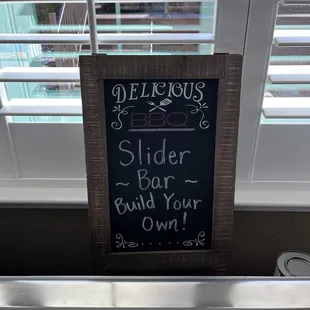 DELICIOUS
BBQ
Slider
~ Bar ~
Build Your
Own!